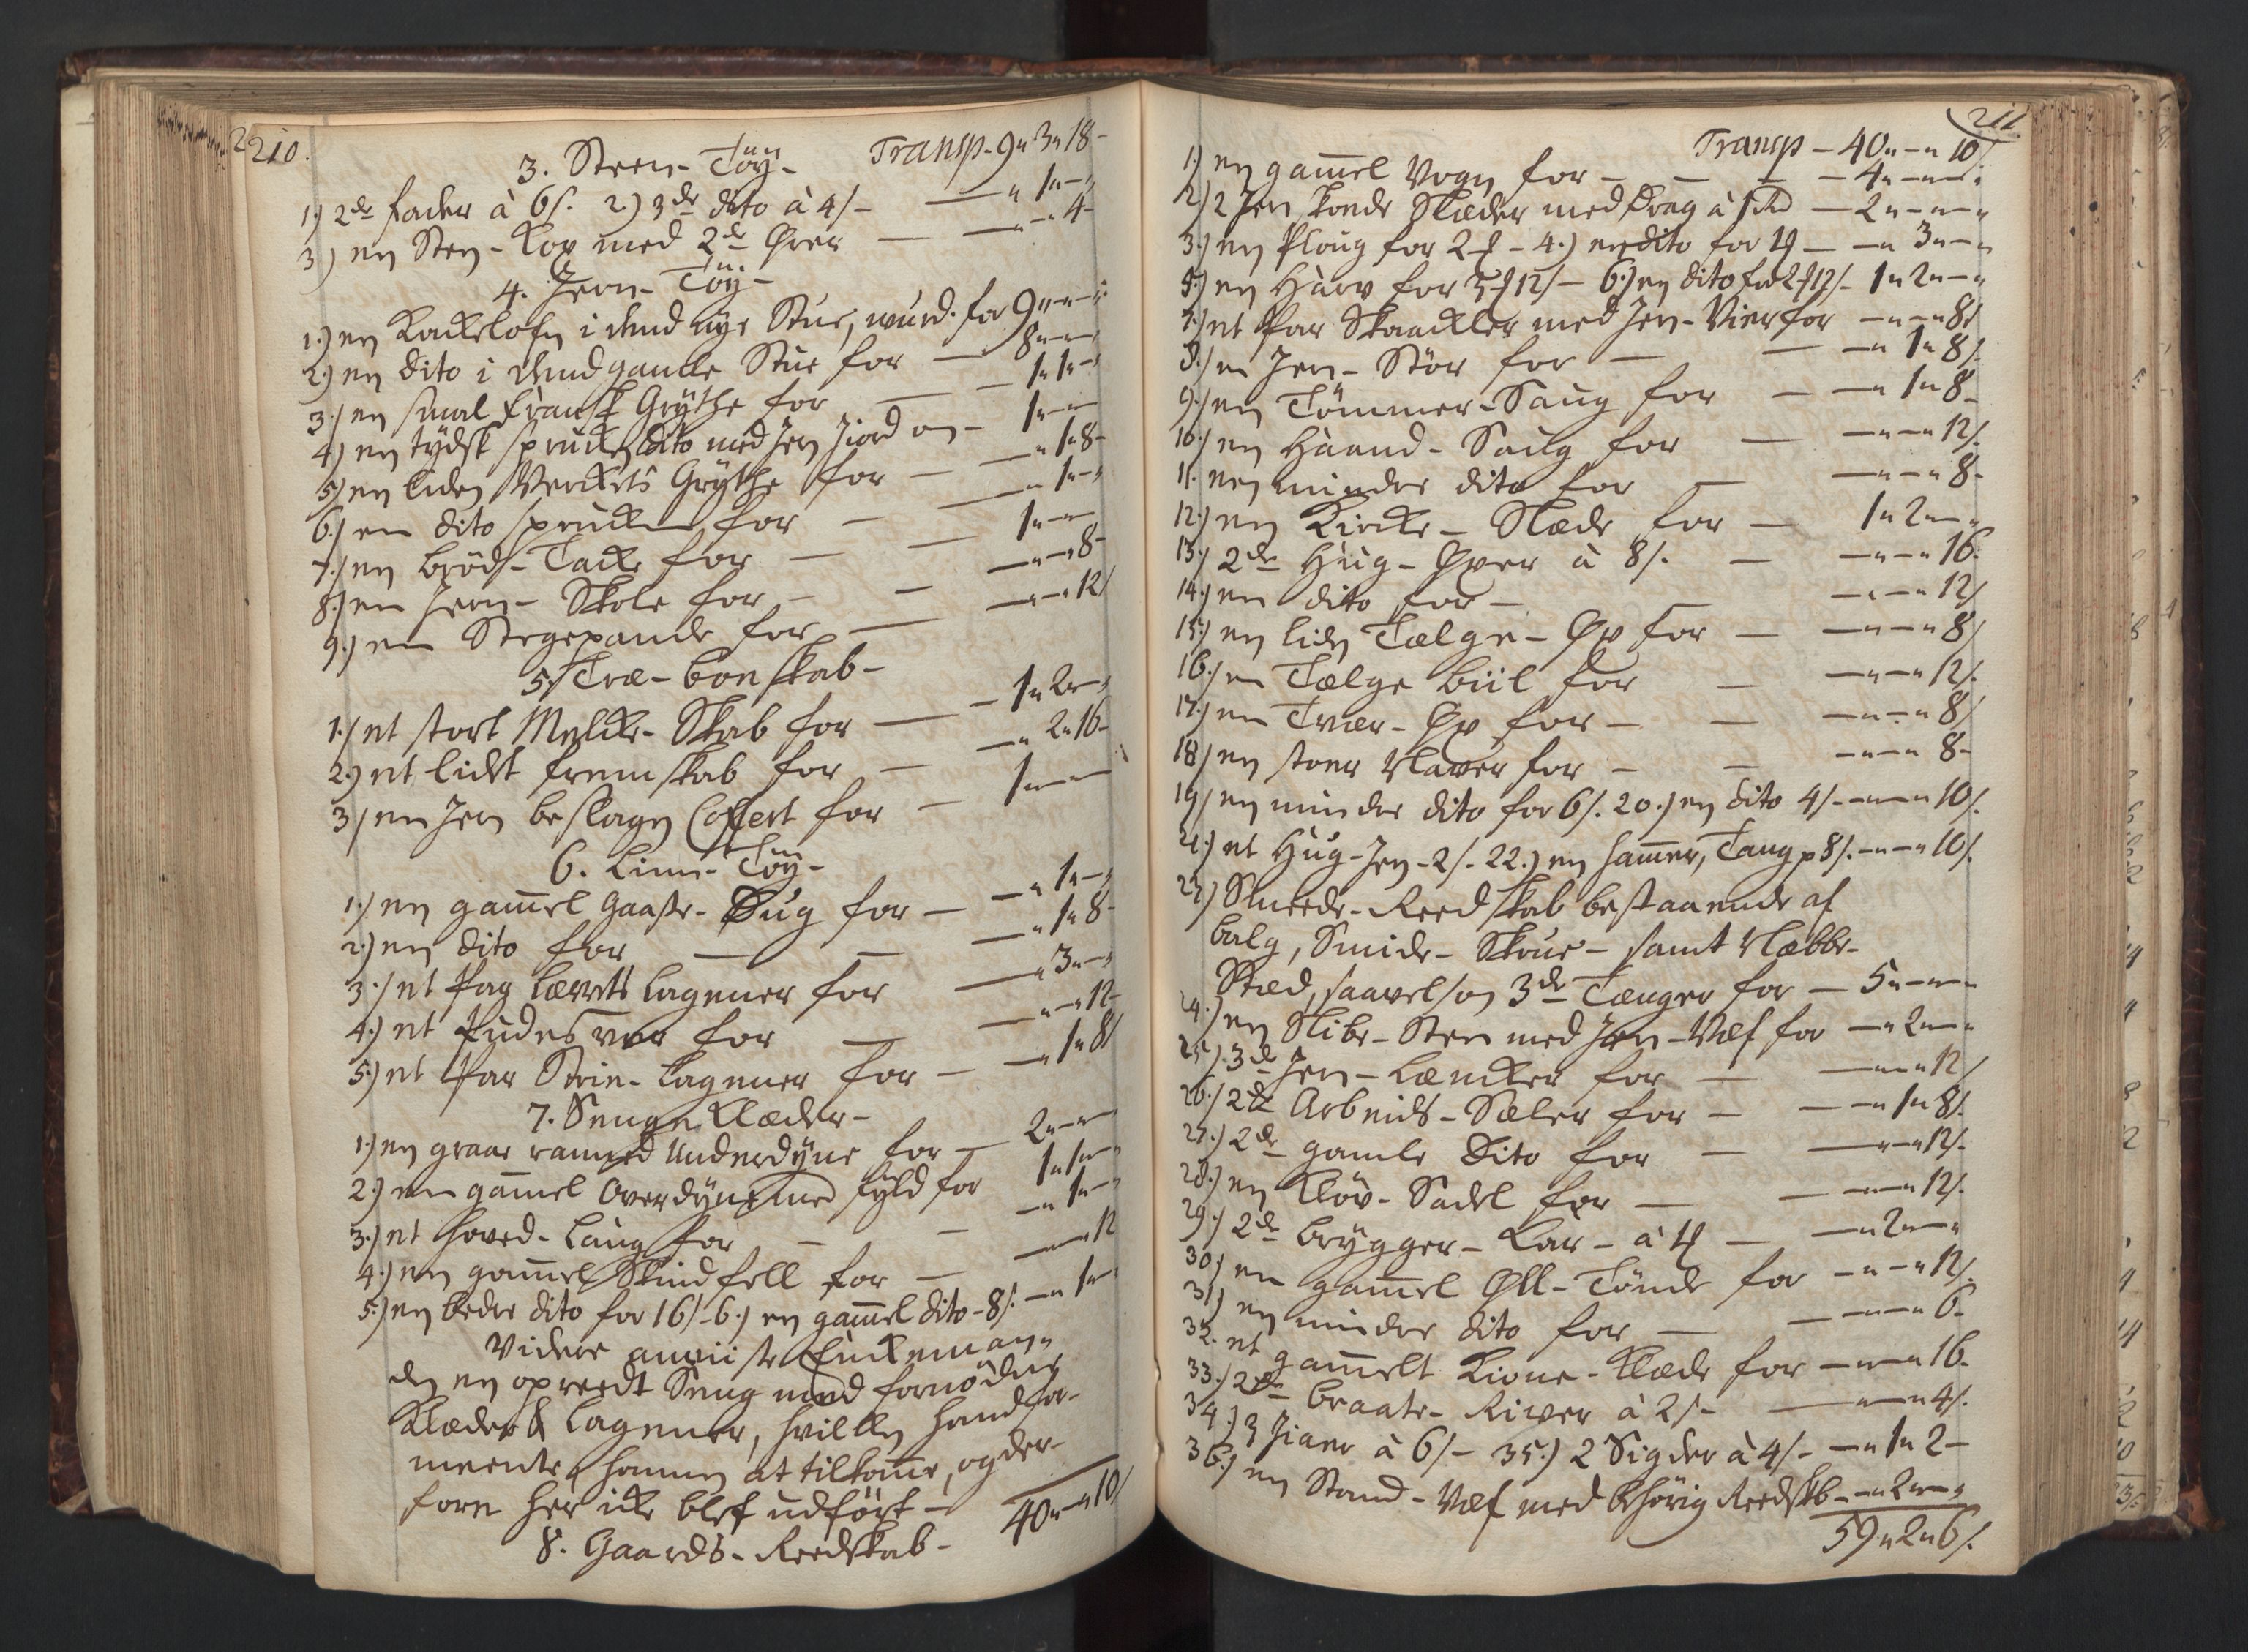 210.
Transp - 9 " 3 " 18 -
3. Steen - Töy -
1.) 2de fader à 6/. 2.) 3de dito à 4/ - — " 1 " - "
3) en Sten - Kop med 2de Ører — — " - " 4 -
4. Jern - Töy -
1.) en Kackelofn i dend nye Stue, wurd. for 9 " - " - "
2.) en dito i dend gamle Stue for — 8 " - " - "
3.) en smal fransk Grythe for — — 1 " 1 " - "
4.) en tydsk sprucken dito med Jern Jiord om - 1 " - " -
5.) en liden Werckets Grythe for — — " 1 " 8 -
6.) en dito sprucken for — — " 1 " - "
7.) en Bröd - Tacke for — — 1 " - " -
8.) en Jern - Skole for — — — " - " 8 -
9.) en Stegepande for — — " - " 12/
5. Træ - Bonskab -
1.) et stort Melcke - Skab for — - 1 " 2 " - "
2.) et lidet fremskab for — — " 2 " 16 -
3.) en Jern beslagen Coffert for — 1 " - " -
6. Linn - Töy -
1.) en gammel Gaasse - Dug for — — " 1 " - "
2.) en dito for — — — " 1 " 8 -
3.) et Par Lærrets Lagener for — " 3 " - "
4.) et Pudes vor for — — " - " 12 -
5.) et Par Strie - Lagener for — — " 1 " 8/
7. Senge Klæder -
1.) en graae ranned Underdyne for — 2 " - " -
2.) en gammel Overdyne med fyld for 1 " 1 " - "
3.) et hoved - Laug for — — — " 1 " - "
4.) en gammel Skind fell for — — " - " 12
5.) en bedre dito for 16/ - 6.) en gammel dito - 8/. — " 1 " -
Videre anviiste Enckeman-
den en opreedt Seng med fornödne
Klæder & Lagener, hvilken hand for-
meente hannem at tilkomme, og der-
fore her icke blef udfört -
40 " - " 10/
8. Gaards - Reedskab -
211.
Transp - 40 " - " 10/.
1.) en gammel Vogn for - — — - 4 " - " - "
2.) 2 Jern skoede Slæder med Drag à 1 Rd — 2 " - " - "
3.) en Ploug for - 4.) en dito for — - " 3 " - "
5.) en Harv for 12/ - 6.) en dito for 12/ - 1 " 2 " - "
7.) et Par Skaackler med Jern - Vier for — " - " 8/
8.) en Jern - Stör for — — — " 1 " 8/.
9.) en Tömmer - Saug for — — " 1 " 8 -
10.) en Haand - Saug for — — " - " 12/.
11. en mindre dito for — — " - " 8 -
12.) en Kircke - Slæde for — 1 " 2 " - "
13.) 2de Hug - Öxer à 8/. — — " - " 16.
14.) en dito for - — — " - " 12/
15.) en liden Tælge - Öx for — — " - " 8/
16.) en Tælge Biil for — — " - " 12/.
17.) en Tvær - Öx for - — — " - " 8/
18.) en stoer Naver for - — - " - " 8 -
19.) en mindre dito for 6/. 20.) en dito 4/ - — " - " 10/.
21.) et Hug - Jern - 2/ - 22.) en hammer, Tang p 8/. — " - " 10/.
23.) Smeede - Reedskab bestaaende af
Balg, Smide - - samt Næbbe-
Stæd, saavelsom 3de Tænger for — 5 " - " - "
24.) en Slibe - Sten med Jern - Vef for — " 2 " - "
25.) 3de Jern - Læncker for — — " - " 12/
26.) 2de Arbeids - Sæler for — — " 1 " 8/.
27.) 2de gamle dito for — — " - " 12/.
28.) en Klöv - Sadel for — — " - " 12/.
29.) 2de Brygger - Kar - à — — " 2 " - "
30.) en gammel Öll - Tönde for — " - " 12/.
31.) en mindre dito for — — " - " 6 -
32. et gammelt Kione - Klæde for — " - " 16 -
33.) 2de Braate - River à 2/ - — " - " 4/.
34.) 3 Jiaer à 6/ - 35.) 2 Sigder à 4/ - — " 1 " 2 -
36.) en Stand - Vef med behörig Reedskb - - " 2 " - "
59 " 2 " 6/.